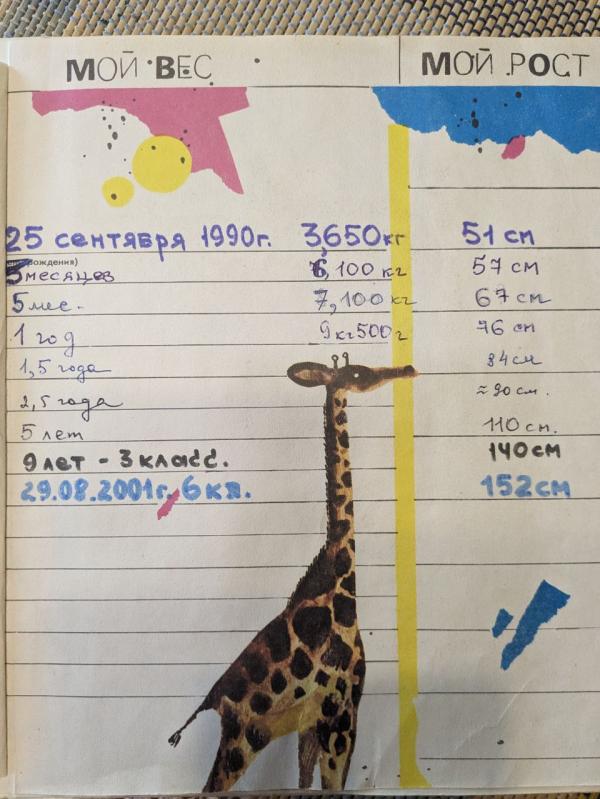 МОЙ ВЕС МОЙ РОСТ
25 сентября 1990г. 3,650кг 51 см
рождения)
месяцев 6,100 кг 57 см
5 мес. 7,100 кг 67 см
1 год 9кг500г 76 см
1,5 года 84см
2,5 года ≈ 90 см.
5 лет 110 см.
9 лет - 3 класс. 140см
29.08.2001г. 6 кл. 152см